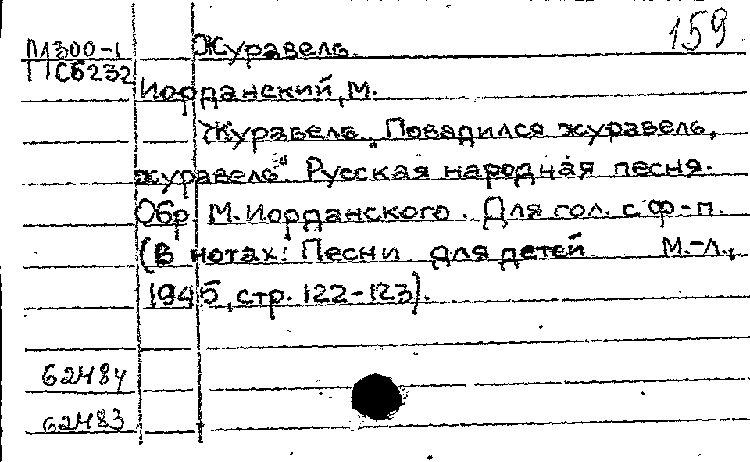 159
М300-1 Журавель.
Сб232
Иорданский, М.
Журавель. „Повадился журавель,
журавель“. Русская народная песня.
Обр. М. Иорданского. Для гол. с ф-п.
(В нотах: Песни для детей М.-Л.,
1945, стр. 122-123).
62484
62483